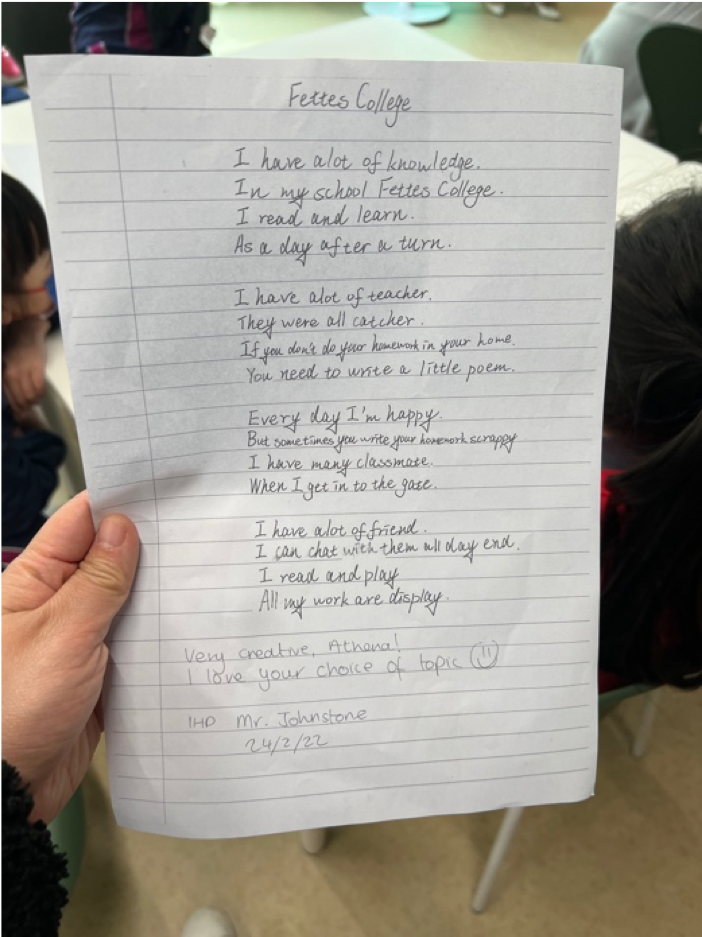 Fettes College
I have alot of knowledge.
In my school Fettes College.
I read and learn.
As a day after a turn.
I have alot of teacher.
They were all catcher.
If you don't do your homework in your home.
You need to write a little poem.
Every day I'm happy.
But sometimes you write your homework scrappy
I have many classmate.
When I get in to the gate.
I have alot of friend.
I can chat with them all day end.
I read and play
All my work are display.
Very creative, Athena!
I love your choice of topic
1HP Mr. Johnstone
24/2/22